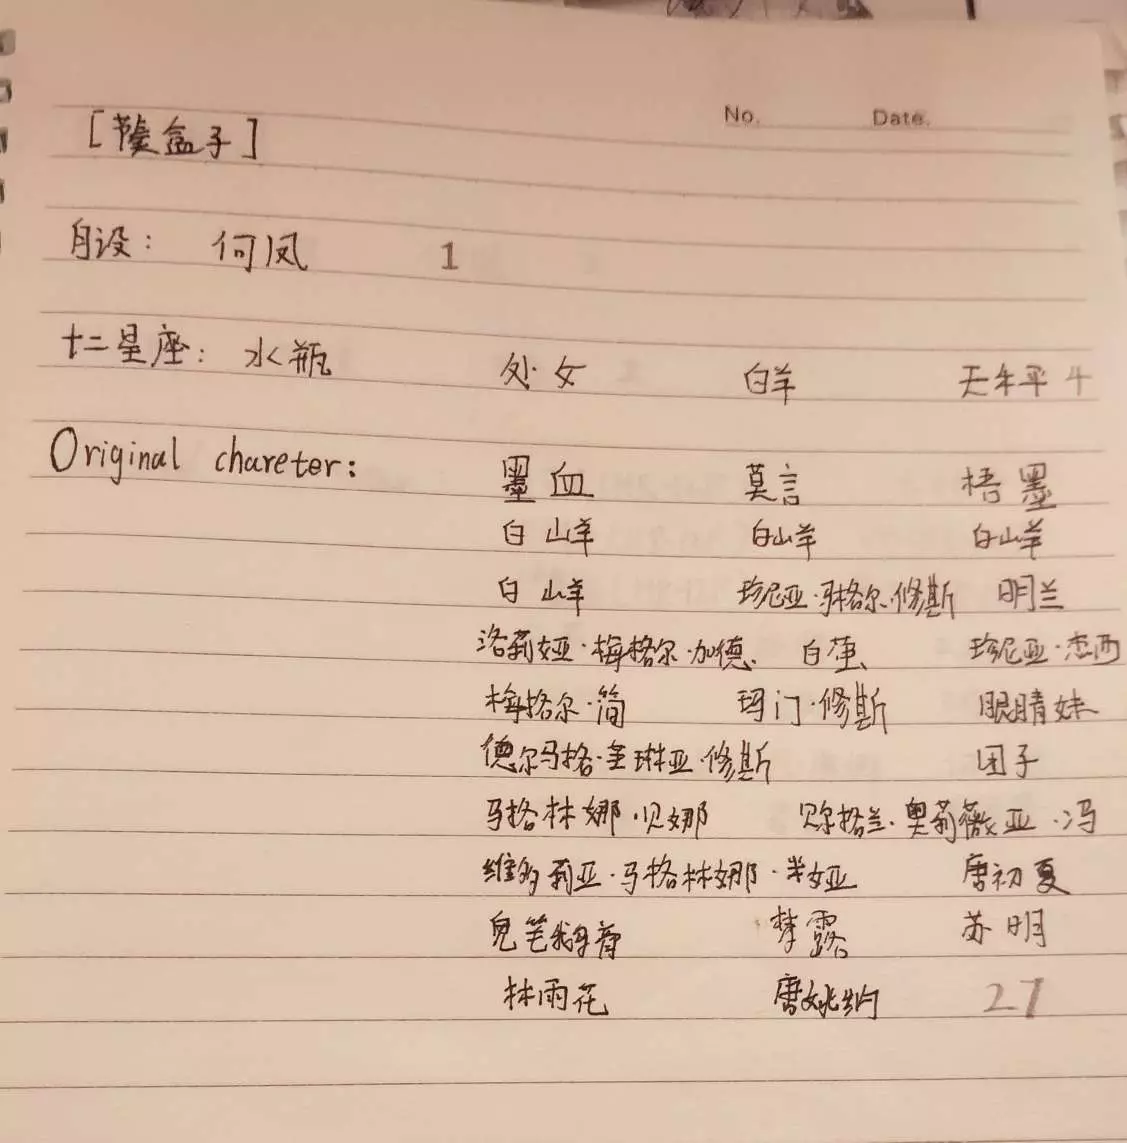 No. Date.
盒子]
自设： 何凤 1
十二星座：水瓶 处女 白羊 天平 4
Original chareter： 墨血 莫言 梧墨
白山羊 白山羊 白山羊
白山羊 珍尼亚·马格尔·修斯 明兰
洛莉娅·梅格尔·加德 白 珍尼亚·杰西
梅格尔·简 玛门·修斯 眼睛妹
德尔马格·圣琳亚·修斯 团子
马格林娜·贝娜 贝尔格兰·奥莉薇亚·冯
维多莉亚·马格林娜·米娅 唐初夏
梦露 苏明
林雨花 唐姚 27